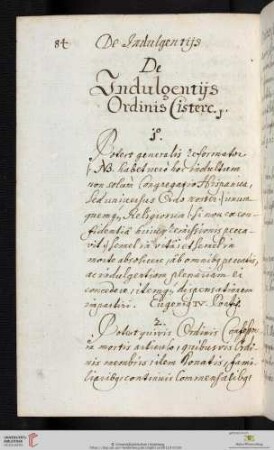 84 De Indulgentijs
De
Indulgentijs
Ordinis Cisterc.
1º.
Potest generalis Reformator
NB. habet vero hoc indultum
non solum Congregatio Hispanica,
sed universus Ordo noster) unum
quemq; Religiosum si non ex con
fidentia huius remissionis pecca
vit, semel in vita, et semel in
morte absolvere ab omnibq peccatis,
ac indulgentiam plenariam ei
concedere, itemq; dispensationem
impartiri. Eugenig IV. Pont.
2.
Potest quivis Ordinis Confess
in mortis articulo, quibusvis Ordi
nis membris, item Donatis, fami
liaribq, continuis Commensalibq,